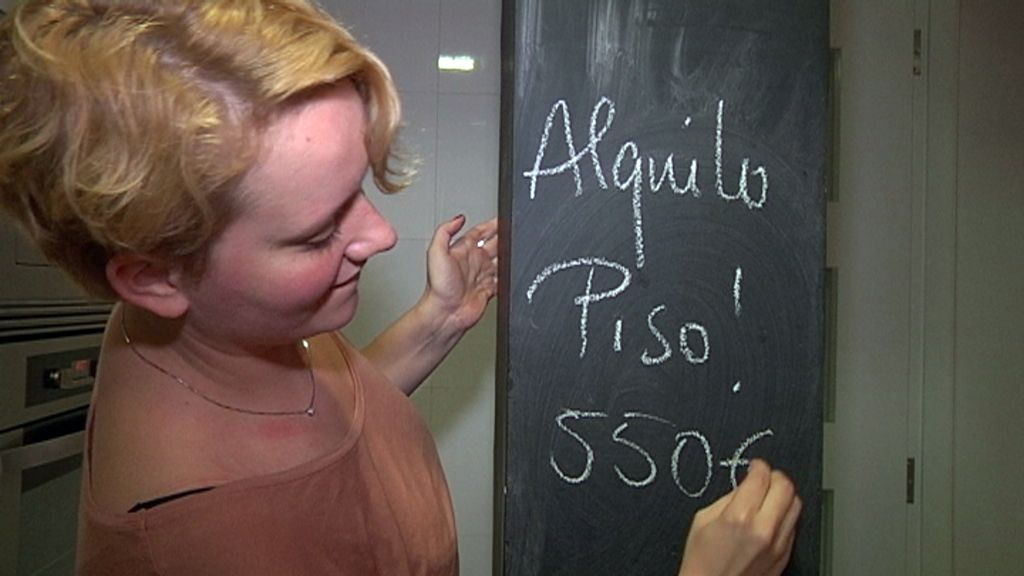 Alquilo
Piso!
550€